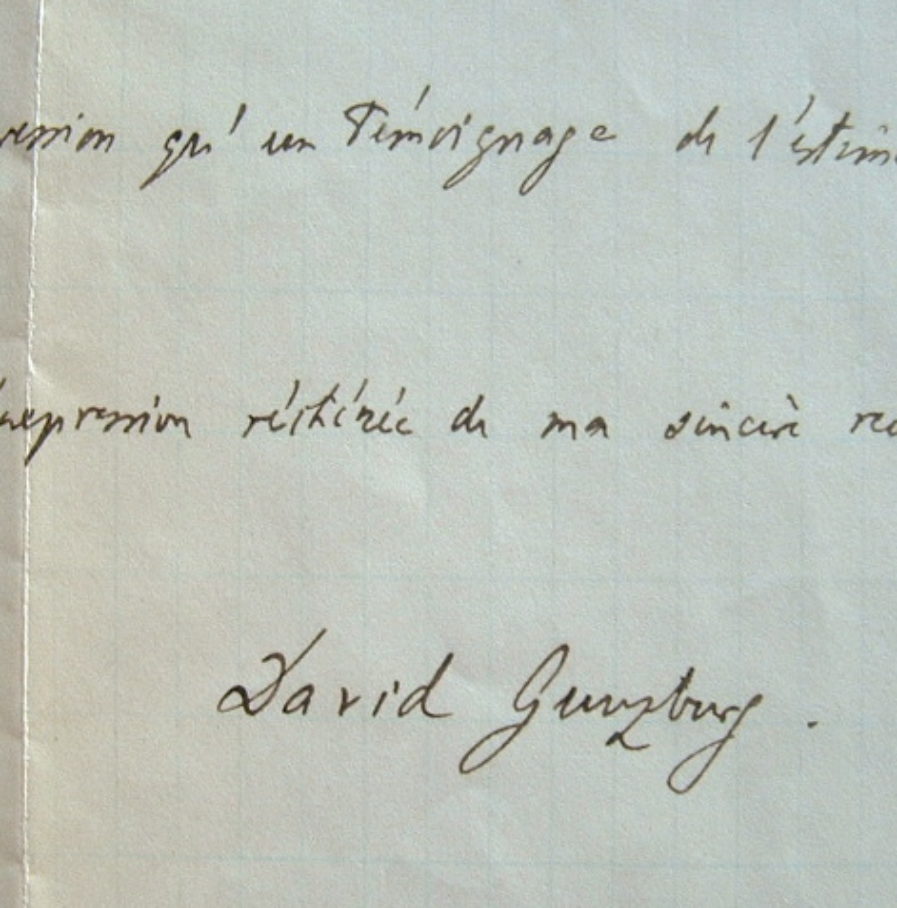 ression qu'un Témoignage de l'estime
expression réitérée de ma sincère rec
David Gunzburg.